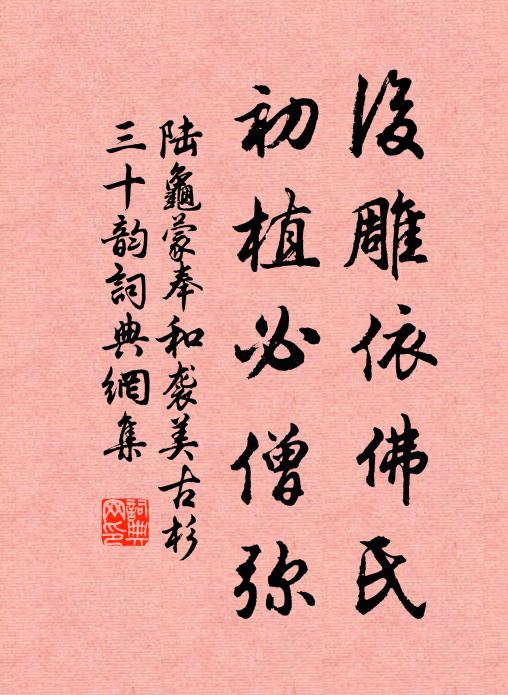 後雕依佛氏
初植必僧弥
陆龜蒙奉和袭美古杉
三十韵詞典網集
詞典網印